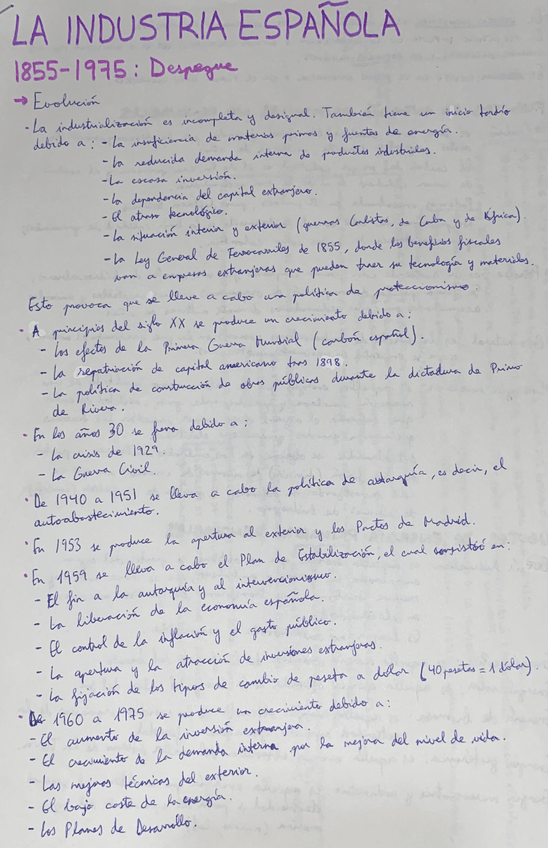 LA INDUSTRIA ESPAÑOLA
1855-1975: Despegue
→ Evolución
· La industrialización es incompleta y desigual. También tiene un inicio tardío
debido a: - La insuficiencia de materias primas y fuentes de energía.
- La reducida demanda interna de productos industriales.
- La escasa inversión.
- La dependencia del capital extranjero.
- El atraso tecnológico.
- La situación interior y exterior (guerras Carlistas, de Cuba y de África).
- La Ley General de Ferrocarriles de 1855, donde los beneficios fiscales
van a empresas extranjeras que puedan traer su tecnología y materiales.
Esto provoca que se lleve a cabo una política de proteccionismo.
· A principios del siglo XX se produce un crecimiento debido a:
- Los efectos de la Primera Guerra Mundial (carbón español).
- La repatriación de capital americano tras 1898.
- La política de construcción de obras públicas durante la dictadura de Primo
de Rivera.
· En los años 30 se frena debido a:
- La crisis de 1929.
- La Guerra Civil.
· De 1940 a 1951 se lleva a cabo la política de autarquía, es decir, el
autoabastecimiento.
· En 1953 se produce la apertura al exterior y los Pactos de Madrid.
· En 1959 se lleva a cabo el Plan de Estabilización, el cual consistió en:
- El fin a la autarquía y al intervencionismo.
- La liberación de la economía española.
- El control de la inflación y el gasto público.
- La apertura y la atracción de inversiones extranjeras.
- La fijación de los tipos de cambio de peseta a dólar (40 pesetas = 1 dólar).
· De 1960 a 1975 se produce un crecimiento debido a:
- El aumento de la inversión extranjera.
- El crecimiento de la demanda interna por la mejora del nivel de vida.
- Las mejoras técnicas del exterior.
- El bajo coste de la energía.
- Los Planes de Desarrollo.